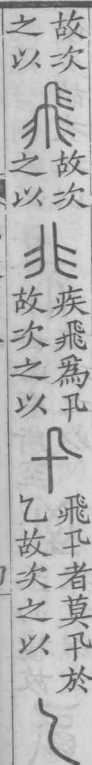 故次
之以
飛
故次
之以
非
疾飛爲卂
故次之以
卂
飛卂者莫卂於
乙故次之以
乙